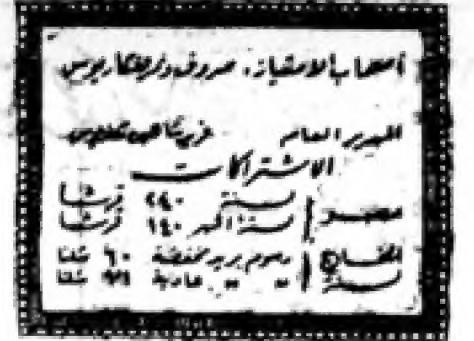 أصحاب الامتياز: صروف ونمر ومكاريوس
المدير العام
الاشتراكات
مصر سنة ٢٤٠ قرشا
ستة اشهر ١٤٠ قرشا
الخارج رسوم بريد مخفضة ٦٠ شلنا
سنة " " عادية شلنا